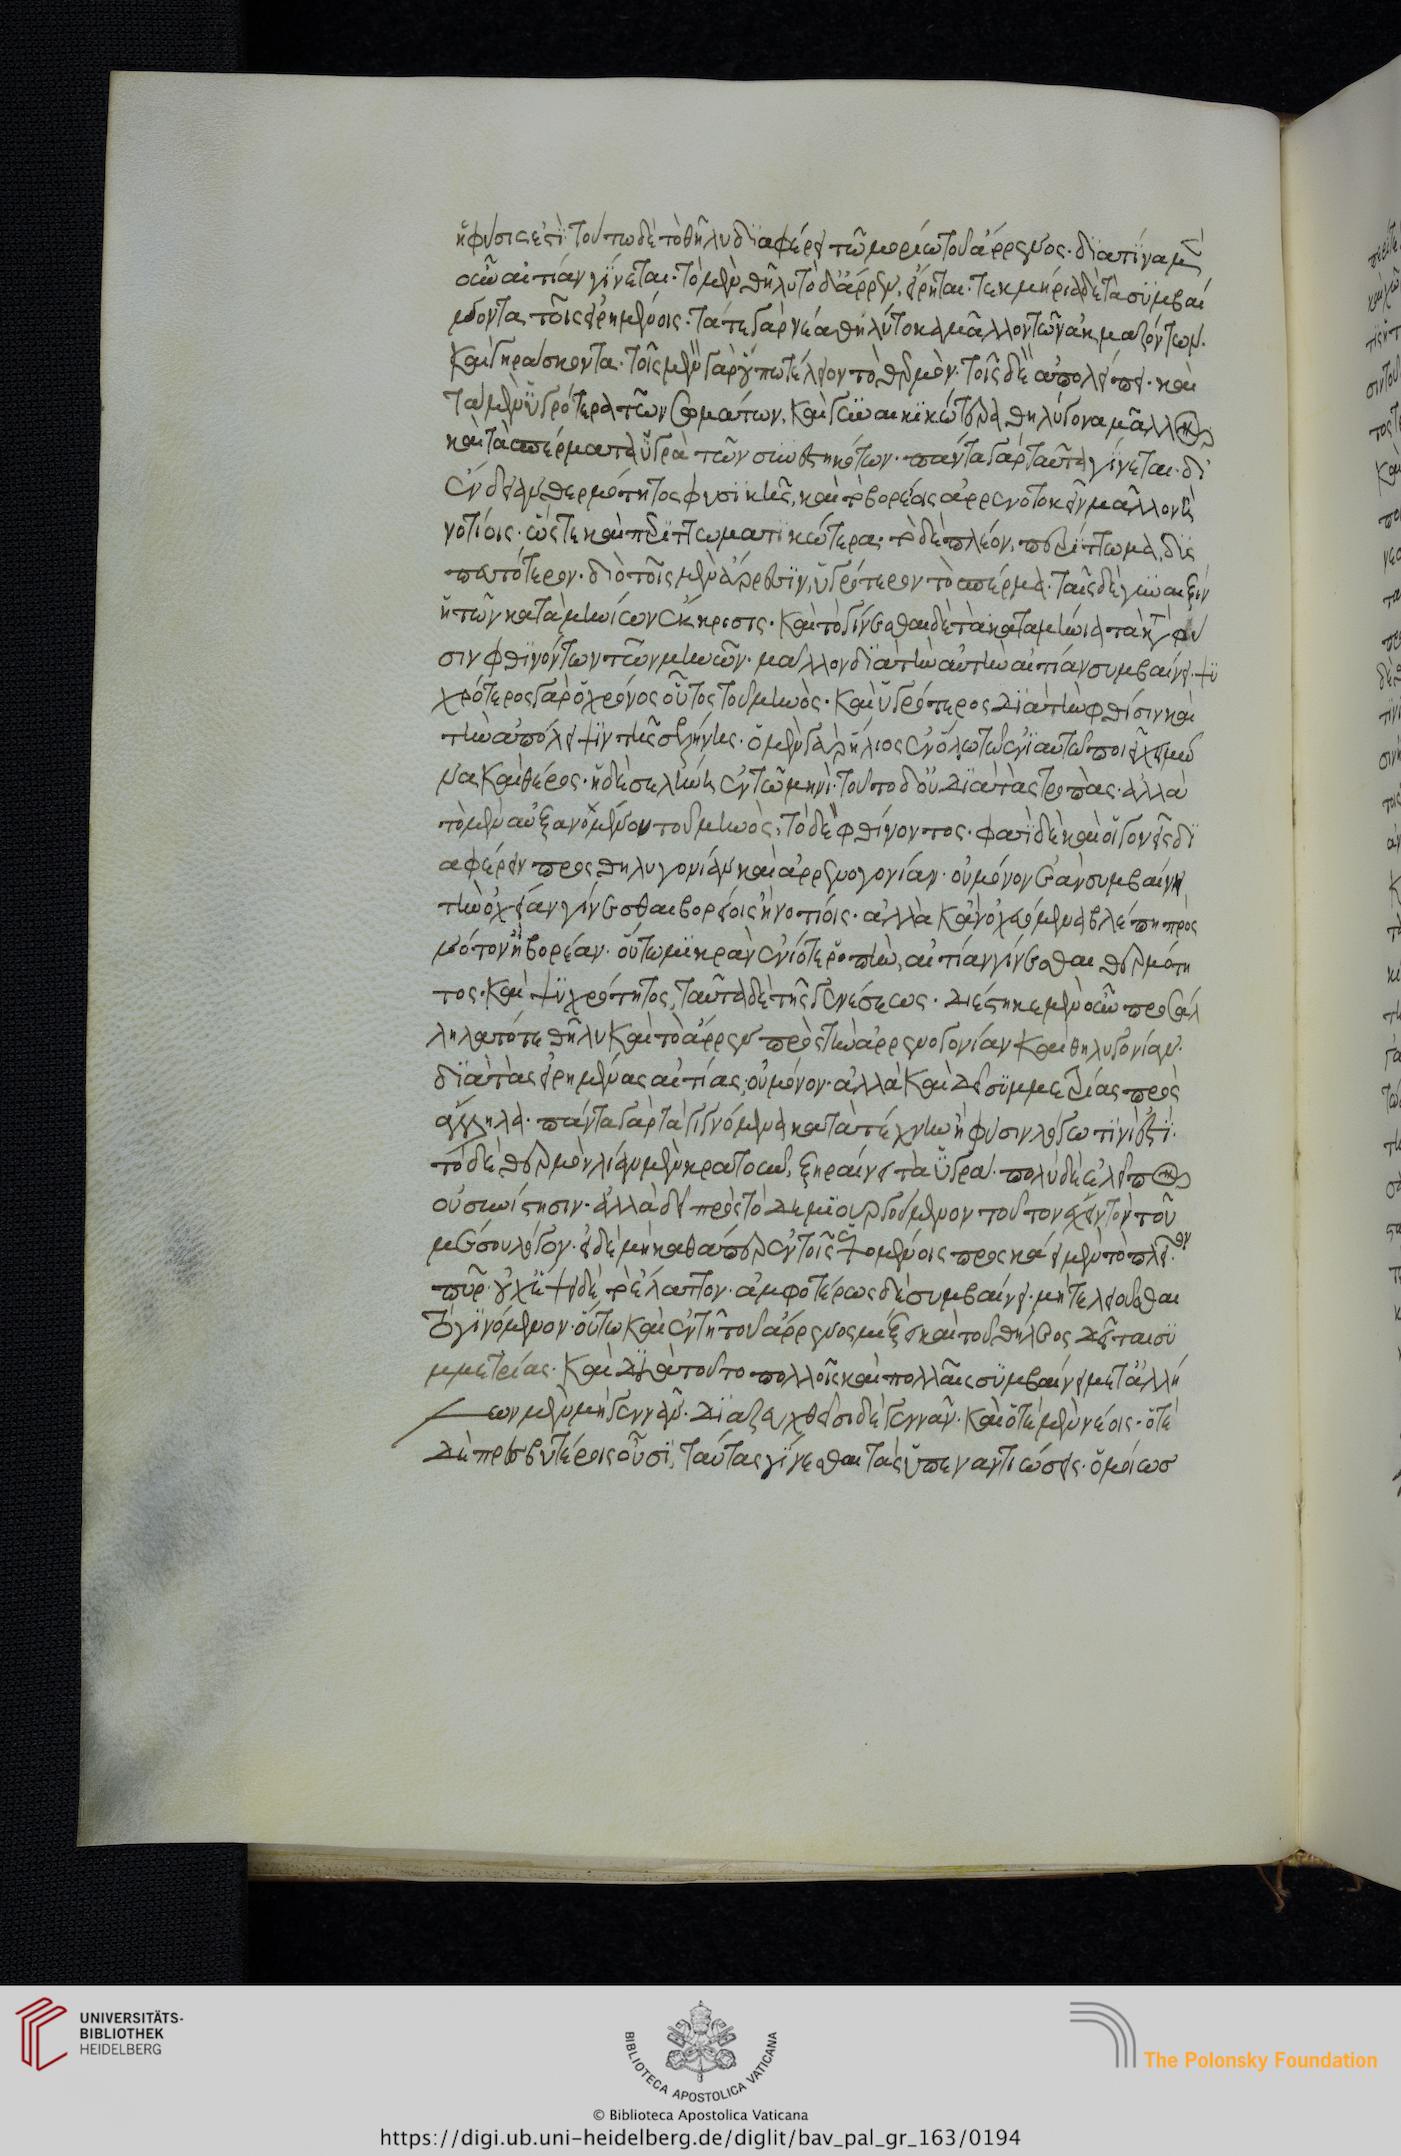 ἡ φύσις ἐστὶ. τούτω δὲ τὸ θῆλυ διαφέρει τῶ μορίω τοῦ ἄρρενος. διατίνα μὲν
οὖν αἰτίαν γίνεται. τὸ μὲν θῆλυ τὸ δ' ἄρρεν, εἴρηται. τεκμήρια δὲ τὰ συμβαί
νοντα τοῖς εἰρημένοις. τά τε γὰρ νέα θηλυτόκα μᾶλλον τῶν ἀκμαζόντων.
καὶ γηράσκοντα. τοῖς μὲν γὰρ οὔπω τέλειον τὸ θερμὸν. τοῖς δὲ ἀπολείπει. καὶ
τὰ μὲν ὑγρότερα τῶν σωμάτων, καὶ γυναικικώτερα θηλυγόνα μᾶλλον
καὶ τὰ σπέρματα ὑγρὰ τῶν συνεστηκότων. πάντα γὰρ ταῦτα γίνεται. δι'
ἔνδειαν θερμότητος φυσικῆς, καὶ τὸ βορέας ἀρρενοτοκεῖν μᾶλλον ἢ
νοτίοις. ὥστε καὶ περιττωματικώτερα. τὸ δὲ πλέον, περίττωμα, δυς
πεπτότερον. διὸ τοῖς μὲν ἄρρεσιν, ὑγρότερον τὸ σπέρμα. ταῖς δὲ γυναιξὶν
ἡ τῶν καταμηνίων ἔκκρισις. καὶ τὸ γίνεσθαι δὲ τὰ καταμήνια τὰ κατὰ φύ
σιν φθινόντων τῶν μηνῶν. μᾶλλον διὰ τὴν αὐτὴν αἰτίαν συμβαίνει. ψυ
χρότερος γὰρ ὁ χρόνος οὗτος τοῦ μηνὸς. καὶ ὑγρότερος διὰ τὴν φθίσιν καὶ
τὴν ἀπόλειψιν τῆς σελήνης. ὁ μὲν γὰρ ἥλιος ἐν ὅλω τῶ ἐνιαυτῶ ποιεῖ χειμῶ
να καὶ θέρος. ἡ δὲ σελήνη ἐν τῶ μηνὶ. τοῦτο δ' οὐ διὰ τὰς τροπὰς. ἀλλὰ
τὸ μὲν αὐξανομένου τοῦ μηνὸς, τὸ δὲ φθίνοντος. φασὶ δὲ καὶ οἱ γονεῖς δι
αφέρειν προς θηλυγονίαν καὶ ἀρρενογονίαν. οὐ μόνον ἐὰν συμβαίνη
τὴν ὀχείαν γίνεσθαι βορείοις ἢ νοτίοις. ἀλλὰ κἂν ὀχευόμενα βλέπη πρὸς
νότον ἢ βορέαν. οὕτω μικρὰν ἐνίοτε ῥοπὴν, αἰτίαν γίνεσθαι θερμότη
τος. καὶ ψυχρότητος, ταῦτα δὲ τῆς γενέσεως. διέστηκε μὲν οὖν προς ἄλ
ληλα τό τε θῆλυ καὶ τὸ ἄρρεν πρὸς τὴν ἀρρενογονίαν καὶ θηλυγονίαν.
διὰ τὰς εἰρημένας αἰτίας, οὐ μόνον. ἀλλὰ καὶ δεῖ συμμετρίας πρὸς
ἄλληλα. πάντα γὰρ τὰ γιγνόμενα κατὰ τέχνην ἢ φύσιν λόγω τινί ἐστι.
τὸ δὲ θερμὸν λίαν μὲν κρατοῦν, ξηραίνει τὰ ὑγρά. πολὺ δὲ ἐλεῖπον
οὐ συνίστησιν. ἀλλὰ δεῖ πρὸς τὸ δημιουργούμενον τοῦτον ἔχειν τὸν τοῦ
μέσου λόγον. εἰ δὲ μὴ καθάπερ ἐν τοῖς ἑψομένοις προσκάει μὲν τὸ πλεῖον
πῦρ. οὐχ ἕψει δὲ τὸ ἔλαττον. ἀμφοτέρως δὲ συμβαίνει. μὴ τελειοῦσθαι
τὸ γινόμενον. οὕτω καὶ ἐν τῆ τοῦ ἄρρενος μίξει καὶ τοῦ θήλεος δεῖται συ
μμετρίας. καὶ διὰ τοῦτο πολλοῖς καὶ πολλαῖς συμβαίνει μετ' ἀλλή
λων μὲν μὴ γεννᾶν. διαζευχθεῖσι δὲ γεννᾶν. καὶ ὅτε μὲν νέοις. ὅτε
δὲ πρεσβυτέροις οὖσι, ταύτας γίνεσθαι τὰς ὑπεναντιώσεις. ὁμοίως
UNIVERSITÄTS-
BIBLIOTHEK
HEIDELBERG
BIBLIOTECA APOSTOLICA VATICANA
The Polonsky Foundation
© Biblioteca Apostolica Vaticana
https://digi.ub.uni-heidelberg.de/diglit/bav_pal_gr_163/0194